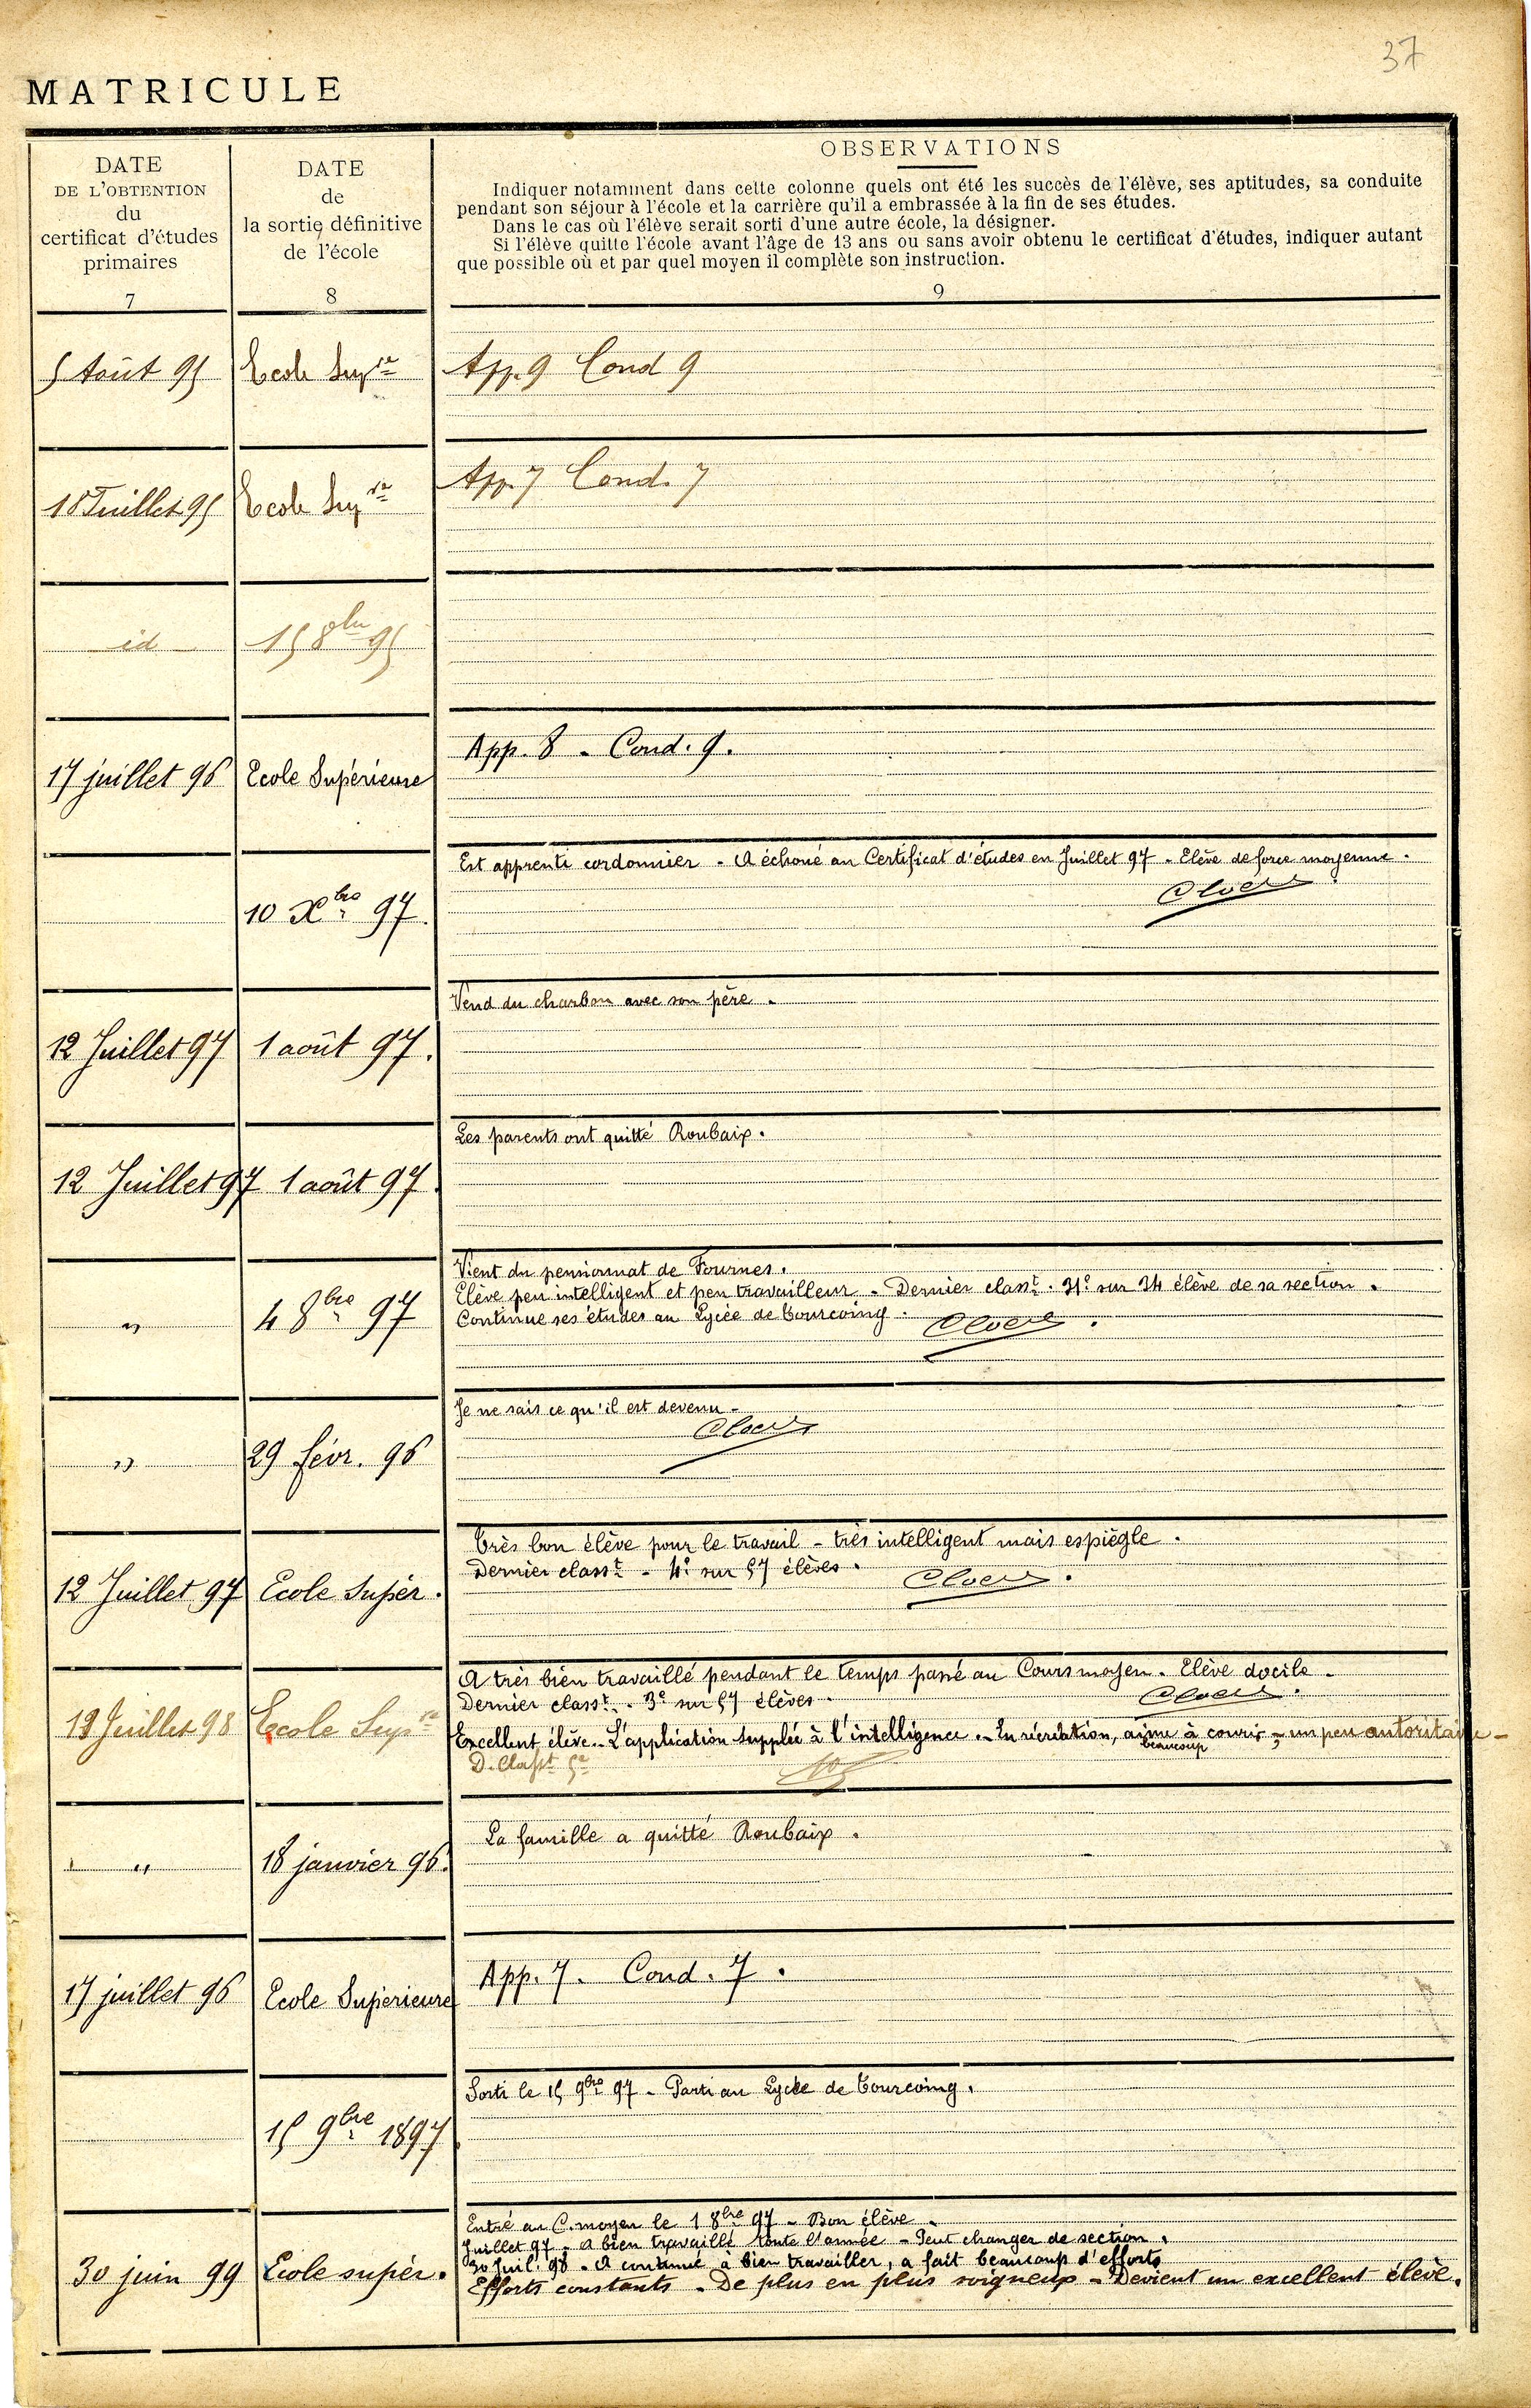 37
MATRICULE
DATE
DE L'OBTENTION
du
certificat d'études
primaires
7
DATE
de
la sortie définitive
de l'école
8
OBSERVATIONS
Indiquer notamment dans cette colonne quels ont été les succès de l'élève, ses aptitudes, sa conduite
pendant son séjour à l'école et la carrière qu'il a embrassée à la fin de ses études.
Dans le cas où l'élève serait sorti d'une autre école, la désigner.
Si l'élève quitte l'école avant l'âge de 13 ans ou sans avoir obtenu le certificat d'études, indiquer autant
que possible où et par quel moyen il complète son instruction.
9
5 Août 95
Ecole Supre
App. 9 Cond 9
18 Juillet 95
Ecole Supre
App. 7 Cond. 7
id
15 8bre 95
17 juillet 96
Ecole Supérieure
App. 8 - Cond. 9.
10 Xbre 97.
Est apprenti cordonnier - A échoué au Certificat d'études en Juillet 97 - Elève de force moyenne.
12 Juillet 97
1 août 97.
Vend du charbon avec son père.
12 Juillet 97
1 août 97.
Les parents ont quitté Roubaix.
"
4 8bre 97
Vient du pensionnat de Fournes.
Elève peu intelligent et peu travailleur - Dernier classt. 31e sur 34 élève de sa section.
Continue ses études au Lycée de Tourcoing.
"
29 févr. 96
Je ne sais ce qu'il est devenu -
12 Juillet 97
Ecole Supér.
Très bon élève pour le travail - très intelligent mais espiègle.
Dernier classt - 4e sur 57 élèves.
Juillet 98
Ecole Supre
A très bien travaillé pendant le temps passé au Cours moyen. Elève docile -
Dernier classt. - 3e sur 57 élèves.
Excellent élève - L'application supplée à l'intelligence. - En récréation, aime beaucoup à courir - un peu autoritaire -
D. Classt 5e
"
18 janvier 96.
La famille a quitté Roubaix.
17 juillet 96
Ecole Supérieure
App. 7. Cond. 7.
15 9bre 1897
Sorti le 15 9bre 97 - Parti au Lycée de Tourcoing.
30 juin 99
Ecole supér.
Entré au C. moyen le 1 8bre 97 - Bon élève -
Juillet 97 - A bien travaillé toute l'année - Peut changer de section.
30 Juil. 98 - A continué à bien travailler, a fait beaucoup d'efforts
Efforts constants - De plus en plus soigneux - Devient un excellent élève.